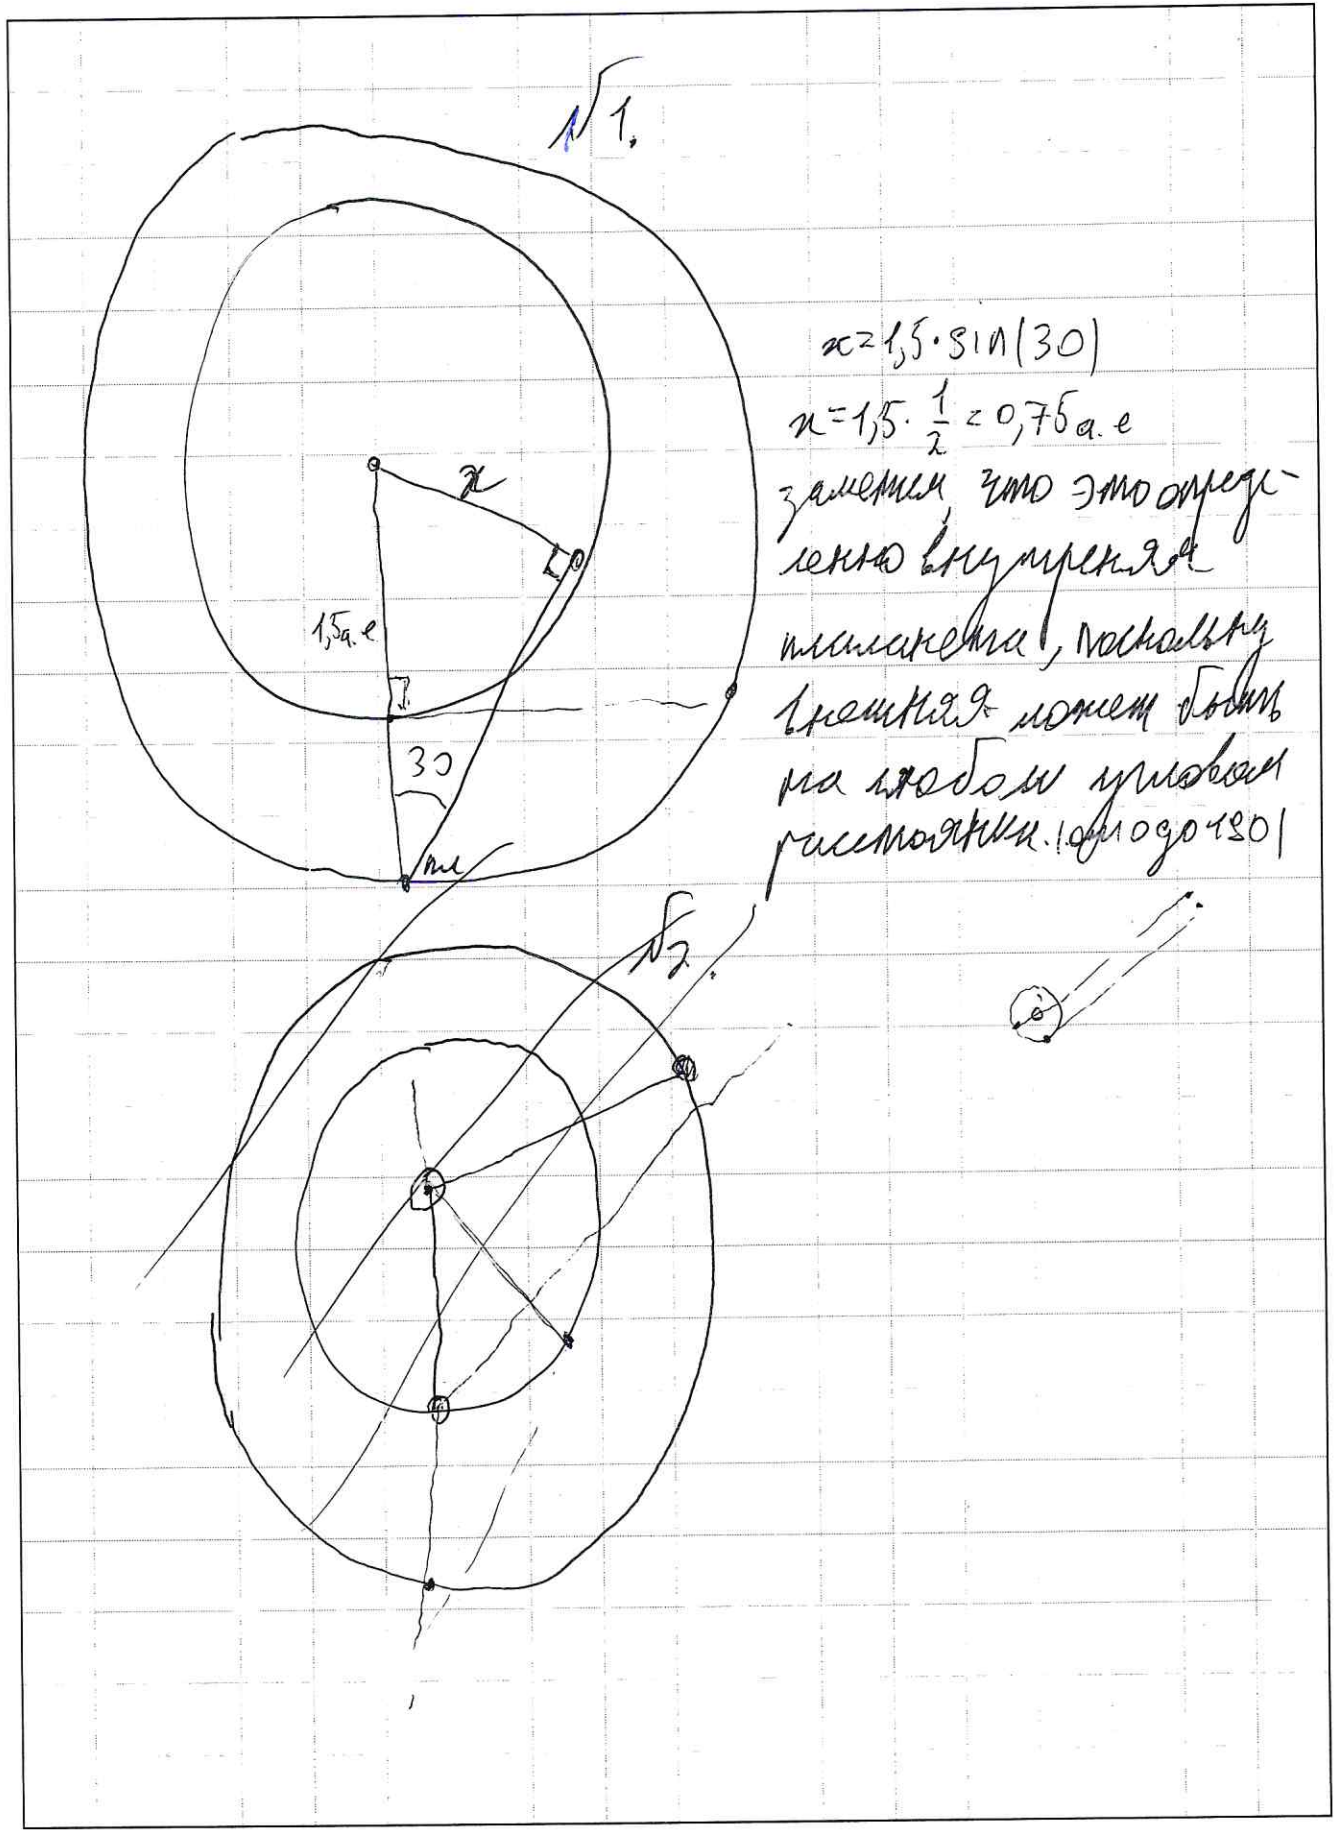 №1.
x=1,5·sin(30)
x=1,5·1/2=0,75а.е
заметим, что это опреде-
ленно внутреняя
пламанета, поскольку
внешняя может быть
на любом угловом
расстоянии. (от 0 до 180)
x
1,5а.е
30
пл
№2.